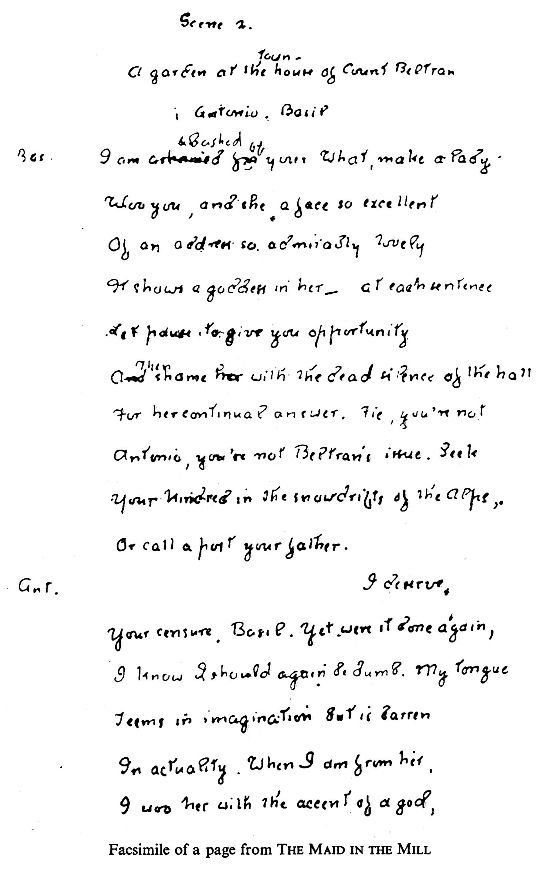 Scene 2.
town-
A garden at the house of Count Beltran
; Antonio, Basil
abashed at
Bas. I am ashamed for you! What, make a lady
Woo you, and she, a face so excellent
Of an address so admirably lovely
It shows a goddess in her— at each sentence
Let pause to give you opportunity
Then
And shame her with the dead silence of the hall
For her continual answer. Fie, you're not
Antonio, you're not Beltran's issue. Seek
Your kindred in the snowdrifts of the Alps,
Or call a post your father.
Ant. I deserve
Your censure, Basil. Yet were it done again,
I know I should again be dumb. My tongue
Teems in imagination but is barren
In actuality. When I am from her,
I woo her with the accent of a god,
Facsimile of a page from THE MAID IN THE MILL